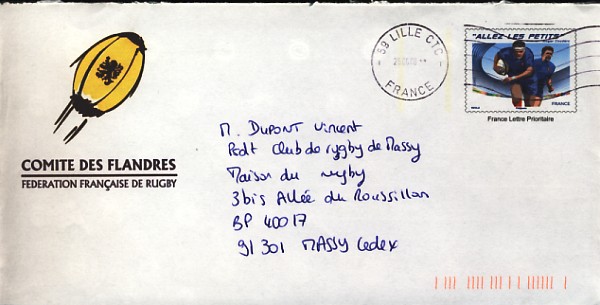 "ALLEZ LES PETITS"
59 LILLE CTC
FRANCE
FRANCE
France Lettre Prioritaire
COMITE DES FLANDRES
FEDERATION FRANÇAISE DE RUGBY
M. DUPONT Vincent
Pcdt Club de rygby de Massy
Maison du rugby
3bis Allée du Roussillon
BP 40017
91301 MASSY Cedex